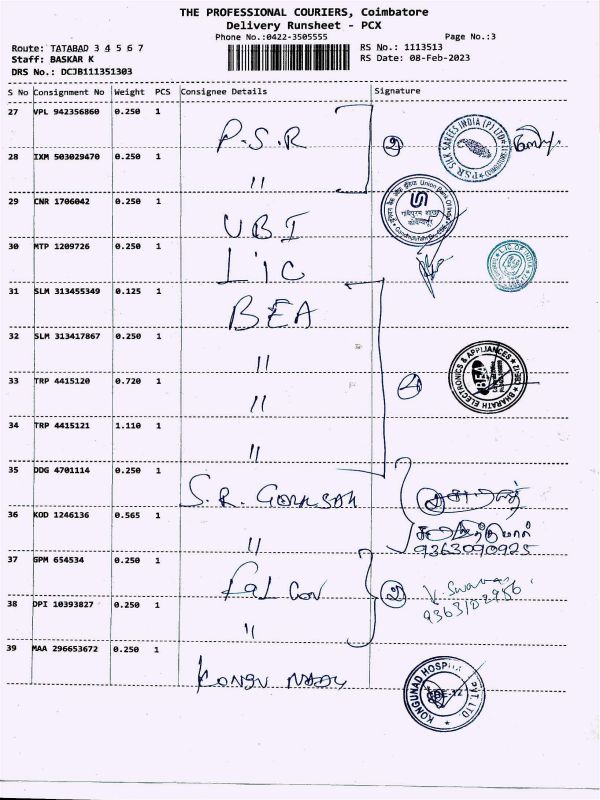 THE PROFESSIONAL COURIERS, Coimbatore
Delivery Runsheet - PCX
Phone No.:0422-3505555
Page No.:3
Route: TATABAD 3 4 5 6 7
Staff: BASKAR K
DRS No.: DCJB111351303
RS No.: 1113513
RS Date: 08-Feb-2023
S No Consignment No Weight PCS Consignee Details Signature
27 VPL 942356860 0.250 1 P.S.R
28 IXM 503029470 0.250 1 "
P.S.R SILK SAREES INDIA (P) LTD
29 CNR 1706042 0.250 1 UBI
Union Bank of India
30 MTP 1209726 0.250 1 LIC
LIC OF INDIA
31 SLM 313455349 0.125 1 BEA
32 SLM 313417867 0.250 1 "
33 TRP 4415120 0.720 1 "
BHARATH ELECTRONICS & APPLIANCES
BEA
CBE-12
34 TRP 4415121 1.110 1 "
35 DDG 4701114 0.250 1 S.R.
36 KOD 1246136 0.565 1 "
9363090925
37 GPM 654534 0.250 1
38 DPI 10393827 0.250 1 "
39 MAA 296653672 0.250 1 KONGU
KONGUNAD HOSPITAL PVT. LTD.
CBE-12